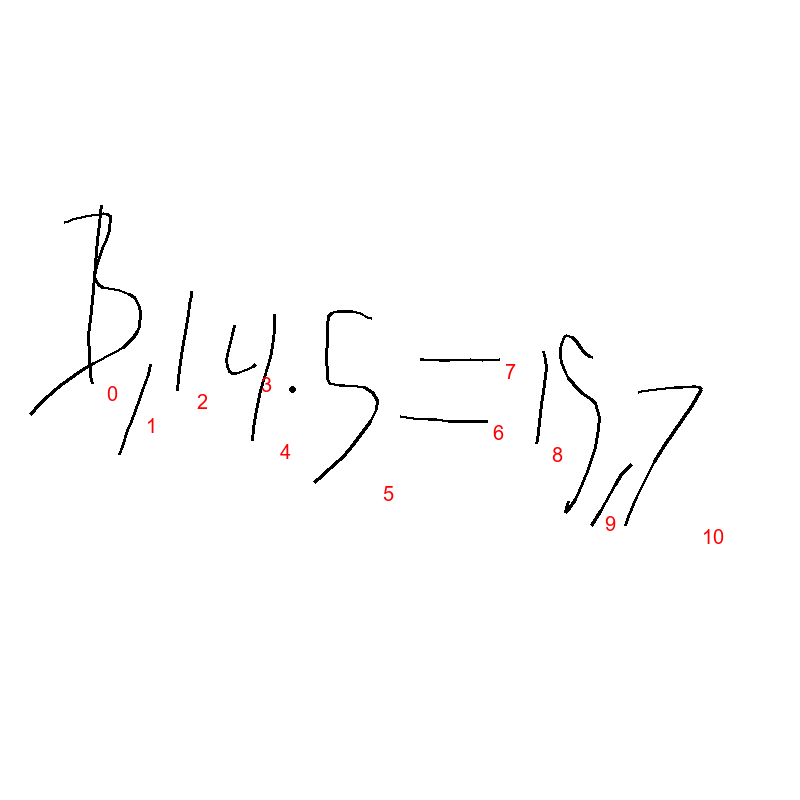 B,14.5=15,7
0 1 2 3 4 5 6 7 8 9 10